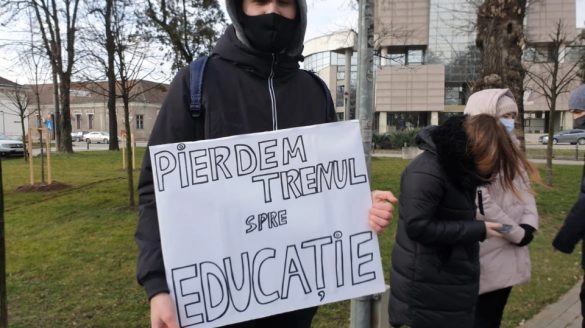 PIERDEM
TRENUL
SPRE
EDUCAȚIE